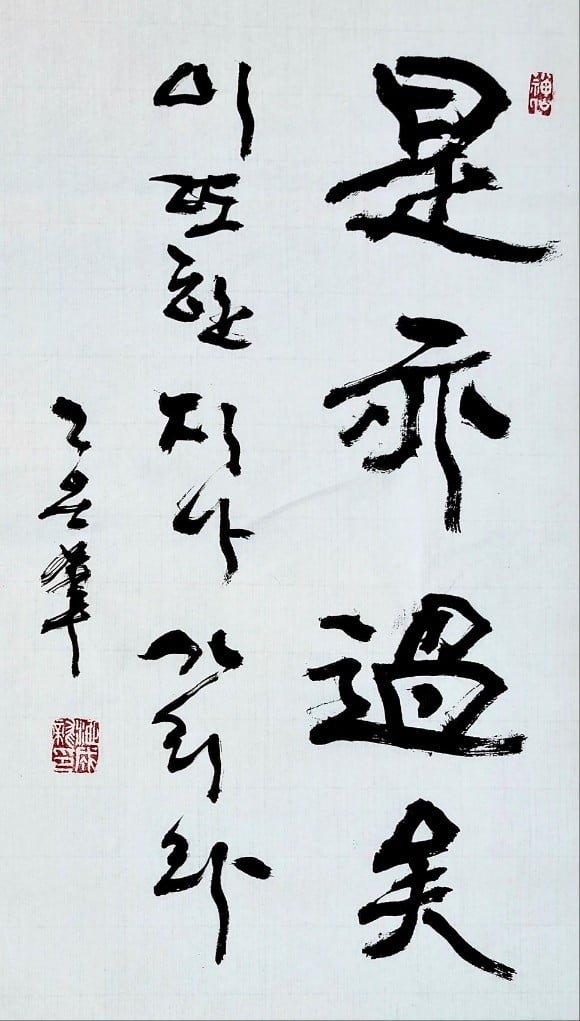 是亦過矣
이 또한 지나 가리라
筆